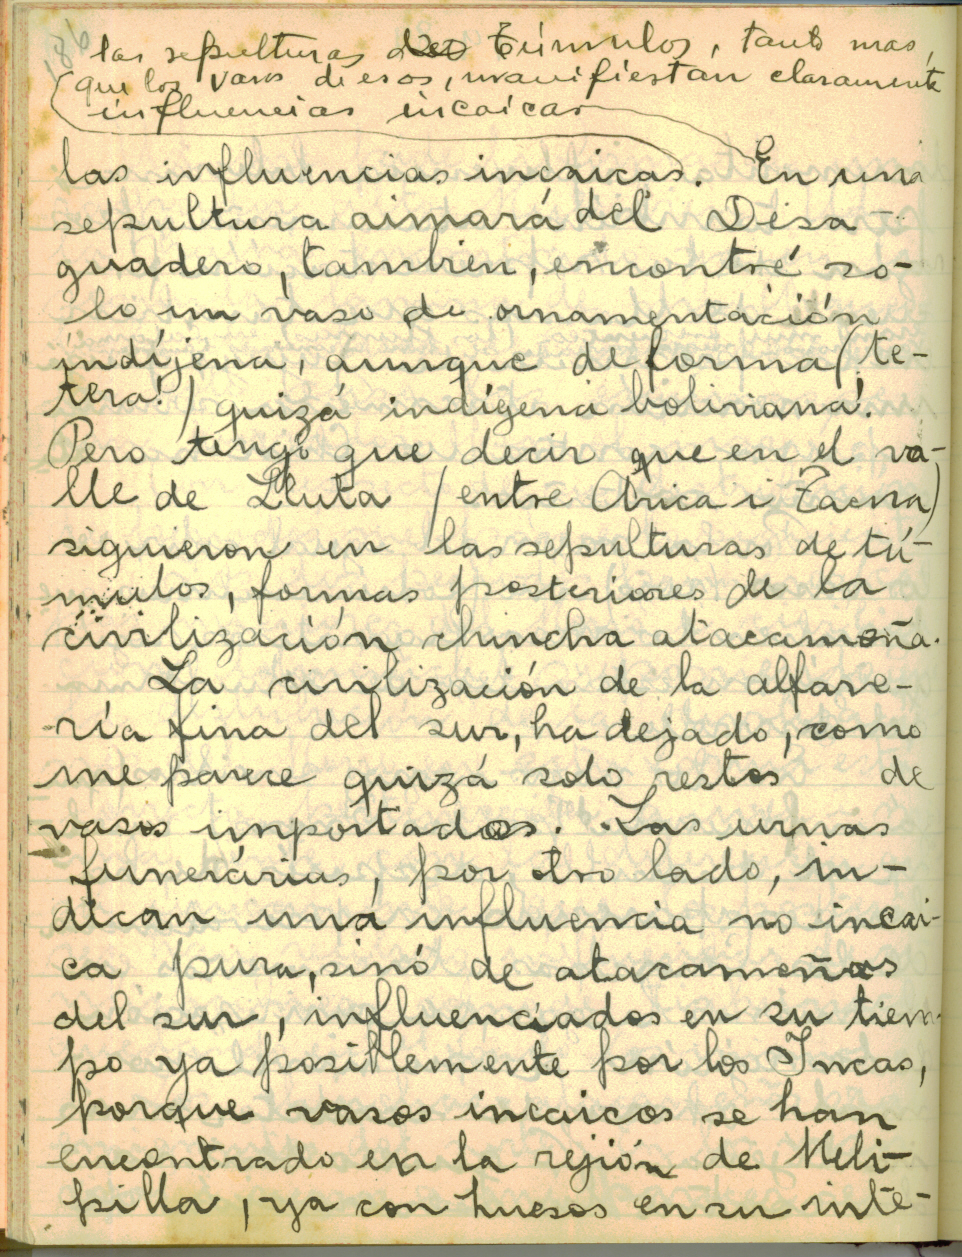 186
las sepulturas de túmulos, tanto mas,
que los vasos di esos, manifiestan claramente
influencias incaicas
las influencias incaicas. En una
sepultura aimará del Desa
guadero, también, encontré so-
lo un vaso de ornamentación
indíjena, aunque de forma (te-
tera!) quizá indígena boliviana!.
Pero tengo que decir que en el va-
lle de Lluta (entre Arica i Tacna)
siguieron en las sepulturas de tú-
mulos, formas posteriores de la
civilización chincha atacameña.
La civilización de la alfare-
ría fina del sur, ha dejado, como
me parece quizá solo restos de
vasos importados. Las urnas
funerárias, por otro lado, in-
dican una influencia no incai-
ca pura, sinó de atacameños
del sur, influenciados en su tiem-
po ya posiblemente por los Incas,
porque vasos incaicos se han
encontrado en la rejión de Meli-
pilla, ya con huesos en su inte-